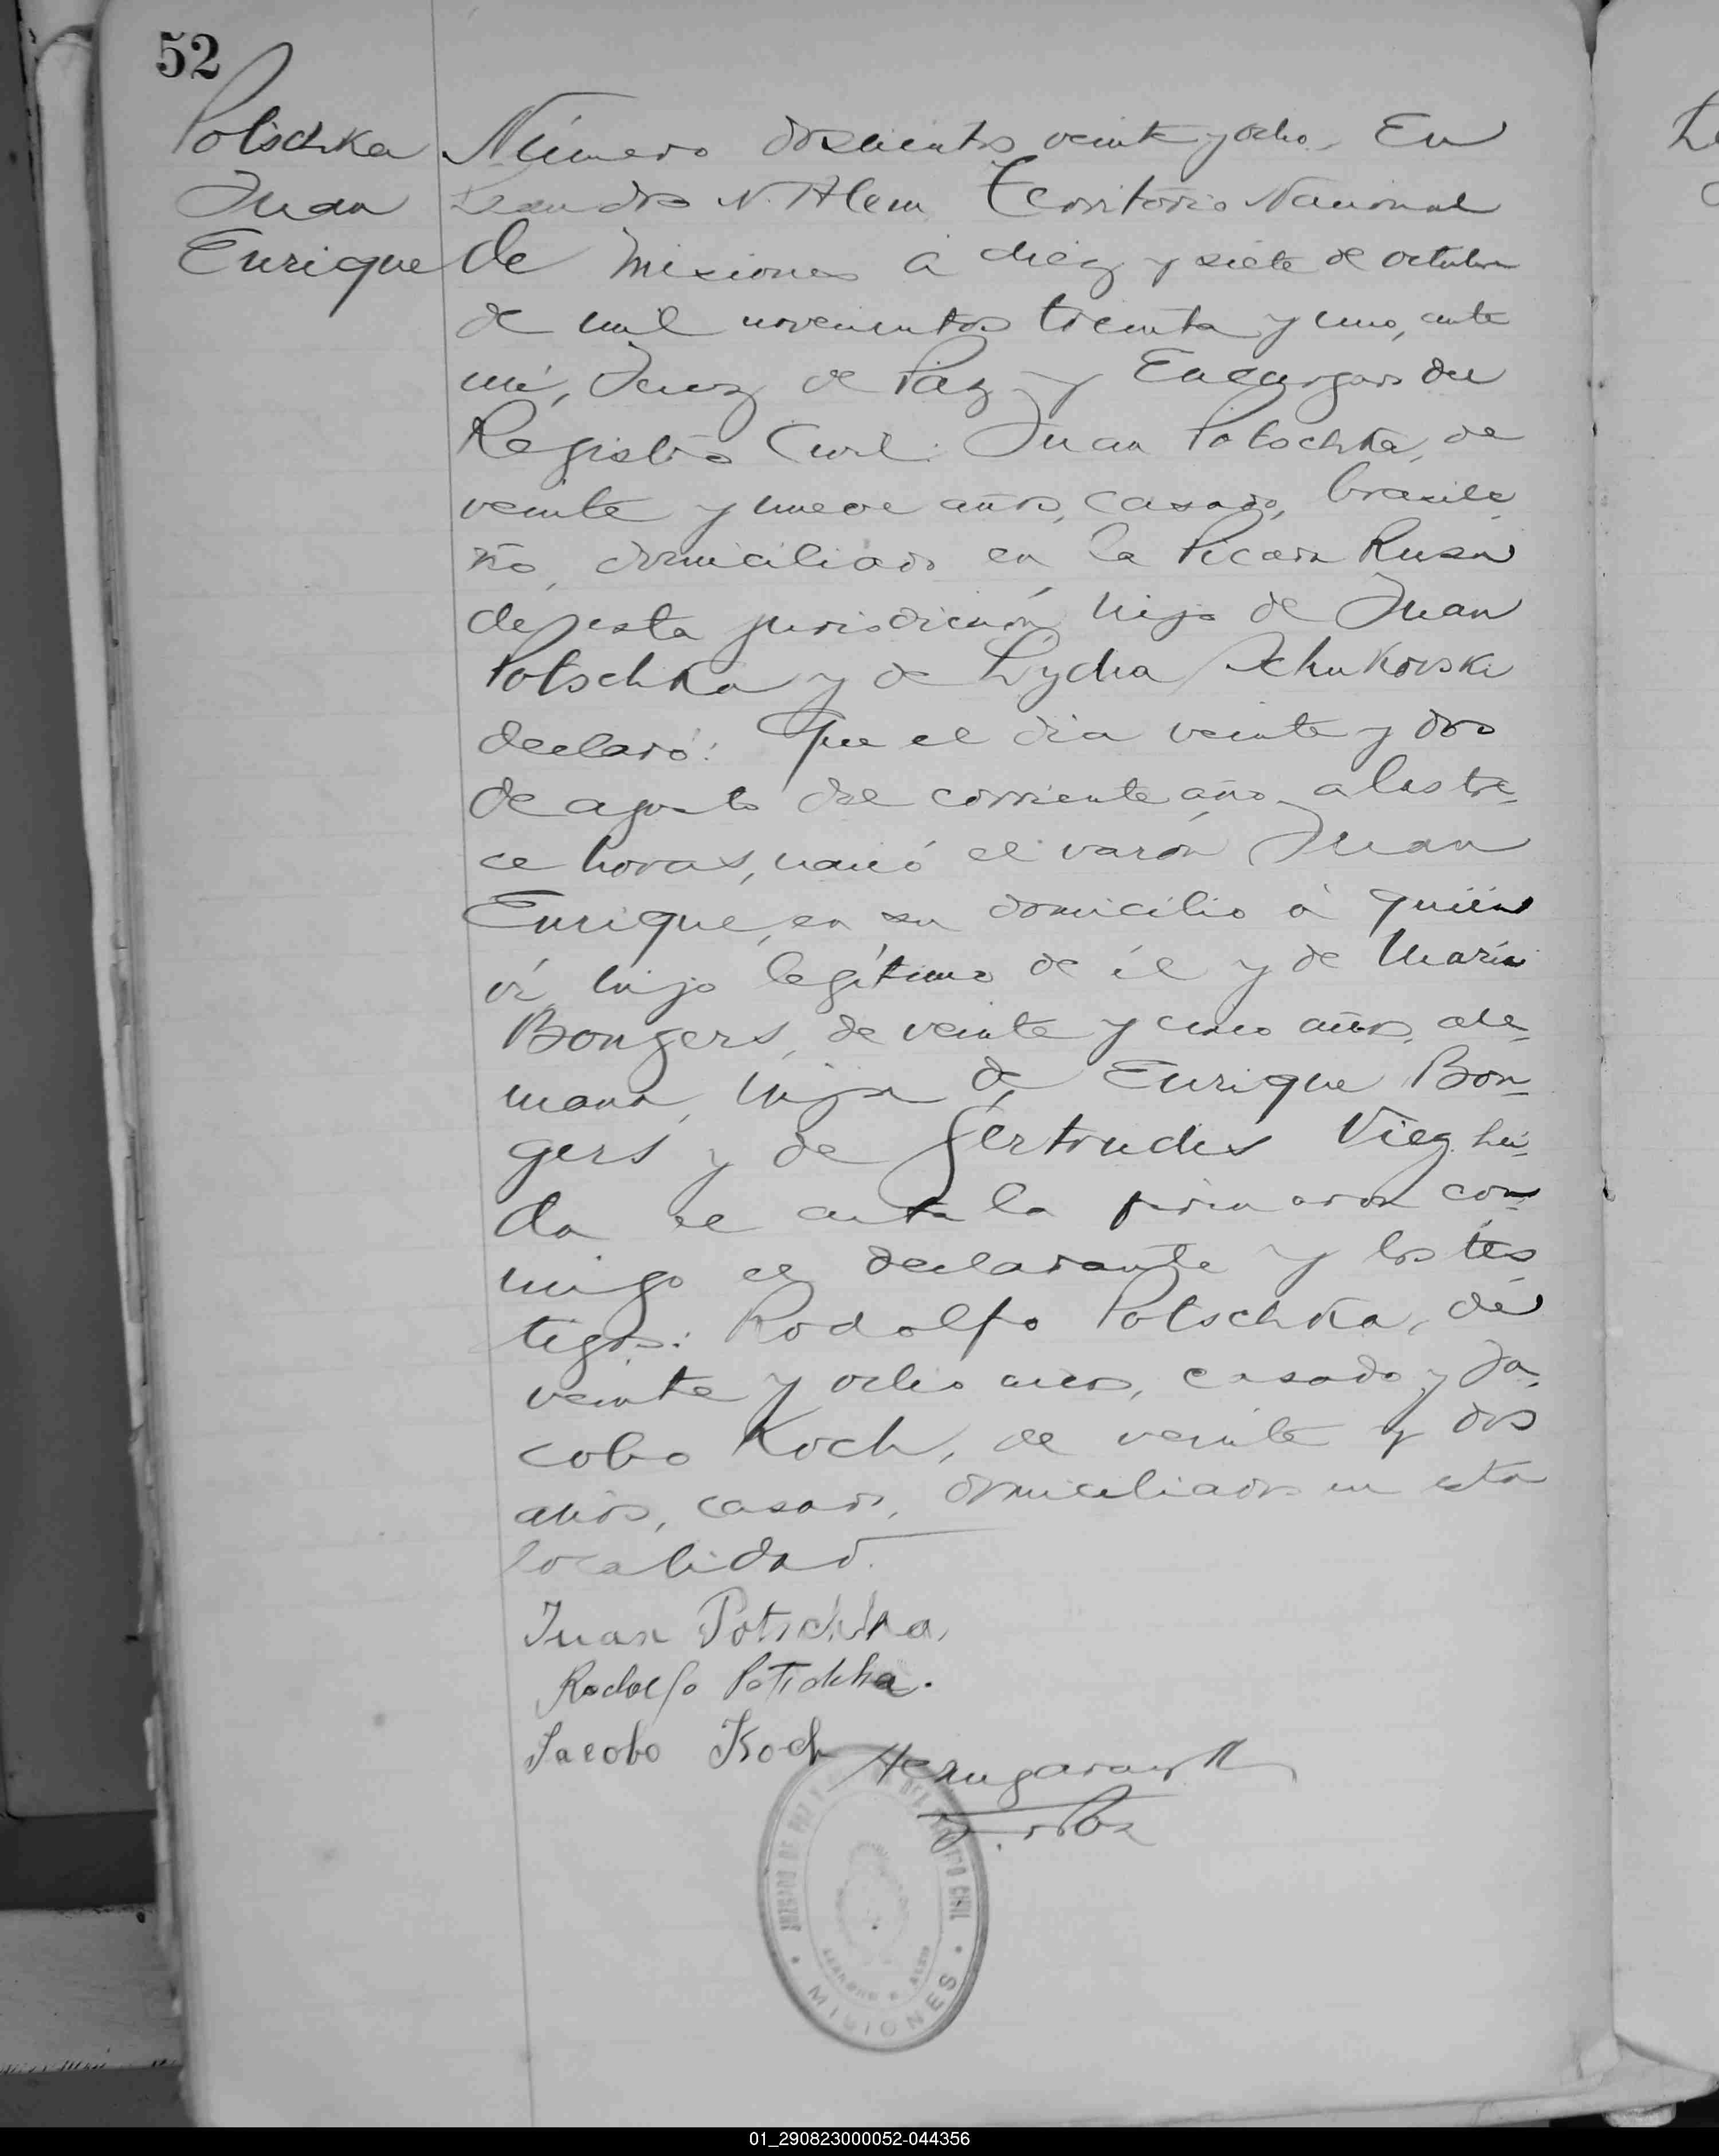 52
Potschka
Juan
Enrique
Número doscientos veinte y ocho. En
Leandro N. Alem Territorio Nacional
de Misiones á diez y siete de octubre
de mil novecientos treinta y uno, ante
mi, Juez de Paz y Encargado del
Registro Civil: Juan Potschka, de
veinte y nueve años, casado, brasile-
ño, domiciliado en la Picada Rusa
de esta jurisdicción, hijo de Juan
Potschka y de Lydia Schukovski
declaró: Que el dia veinte y dos
de agosto del corriente año, a las tre-
ce horas, nació el varón Juan
Enrique, en su domicilio á quién
ví, hijo legítimo de él y de María
Bongers, de veinte y cinco años, ale-
mana, hija de Enrique Bon-
gers y de Gertrudis Vieg. Leí-
da el acta la firmaron con-
migo el declarante y los tes-
tigos: Rodolfo Potschka, de
veinte y ocho años, casado y Ja-
cobo Koch, de veinte y dos
años, casado, domiciliados en esta
localidad.
Juan Potschka.
Rodolfo Potschka.
Jacobo Koch
J. de Paz
JUZGADO DE PAZ Y DEL REGISTRO CIVIL
LEANDRO N. ALEM
MISIONES
01_290823000052-044356